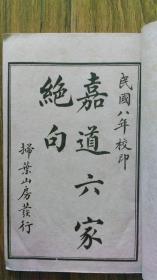 民國八年校印
嘉道六家
絕句
掃葉山房發行